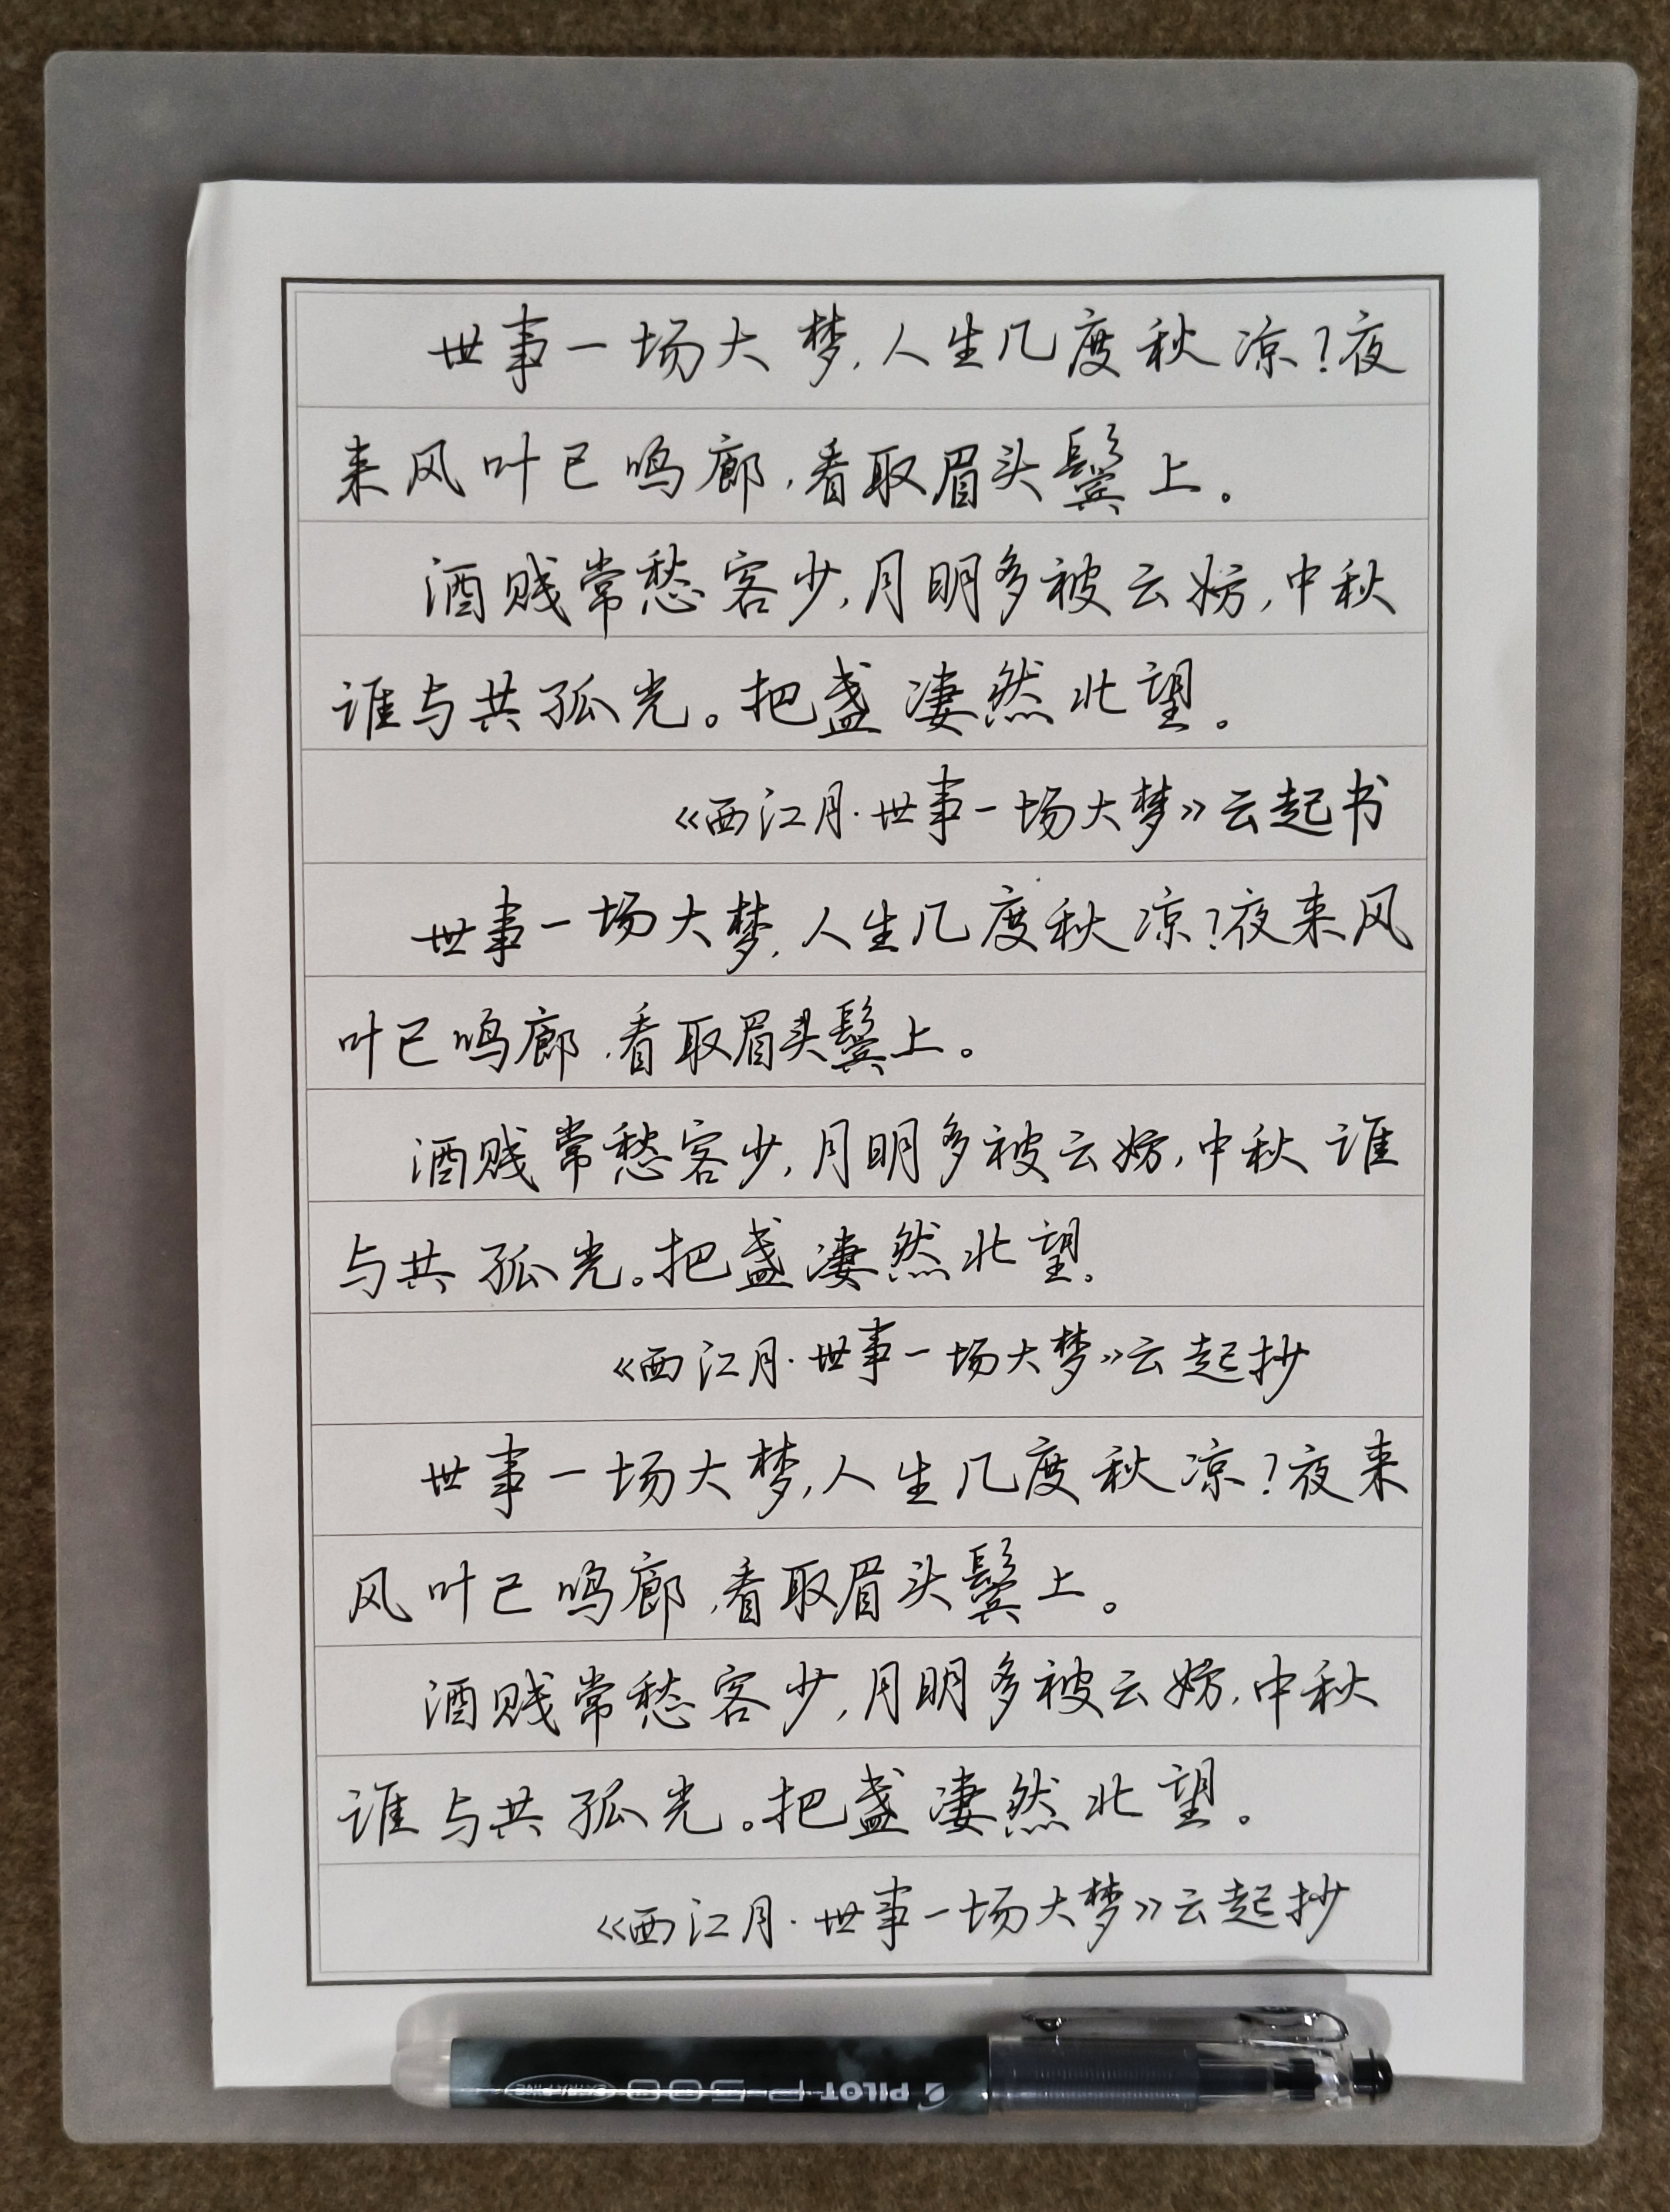 世事一场大梦,人生几度秋凉?夜
来风叶已鸣廊,看取眉头鬓上。
酒贱常愁客少,月明多被云妨,中秋
谁与共孤光。把盏凄然北望。
《西江月·世事一场大梦》云起书
世事一场大梦,人生几度秋凉?夜来风
叶已鸣廊,看取眉头鬓上。
酒贱常愁客少,月明多被云妨,中秋谁
与共孤光。把盏凄然北望。
《西江月·世事一场大梦》云起抄
世事一场大梦,人生几度秋凉?夜来
风叶已鸣廊,看取眉头鬓上。
酒贱常愁客少,月明多被云妨,中秋
谁与共孤光。把盏凄然北望。
《西江月·世事一场大梦》云起抄
PILOT P-500 EXTRA FINE